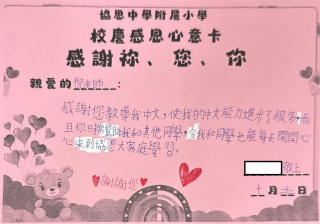 協恩中學附屬小學
校慶感恩心意卡
感謝祢、您、你
親愛的倪老師：
感謝您教導我中文，使我的中文能力進步了很多，而
且你時常幫助我和其他同學，令我和同學也能每天開開心
心來到協恩大家庭學習。
謝謝您
敬上
十月十一日